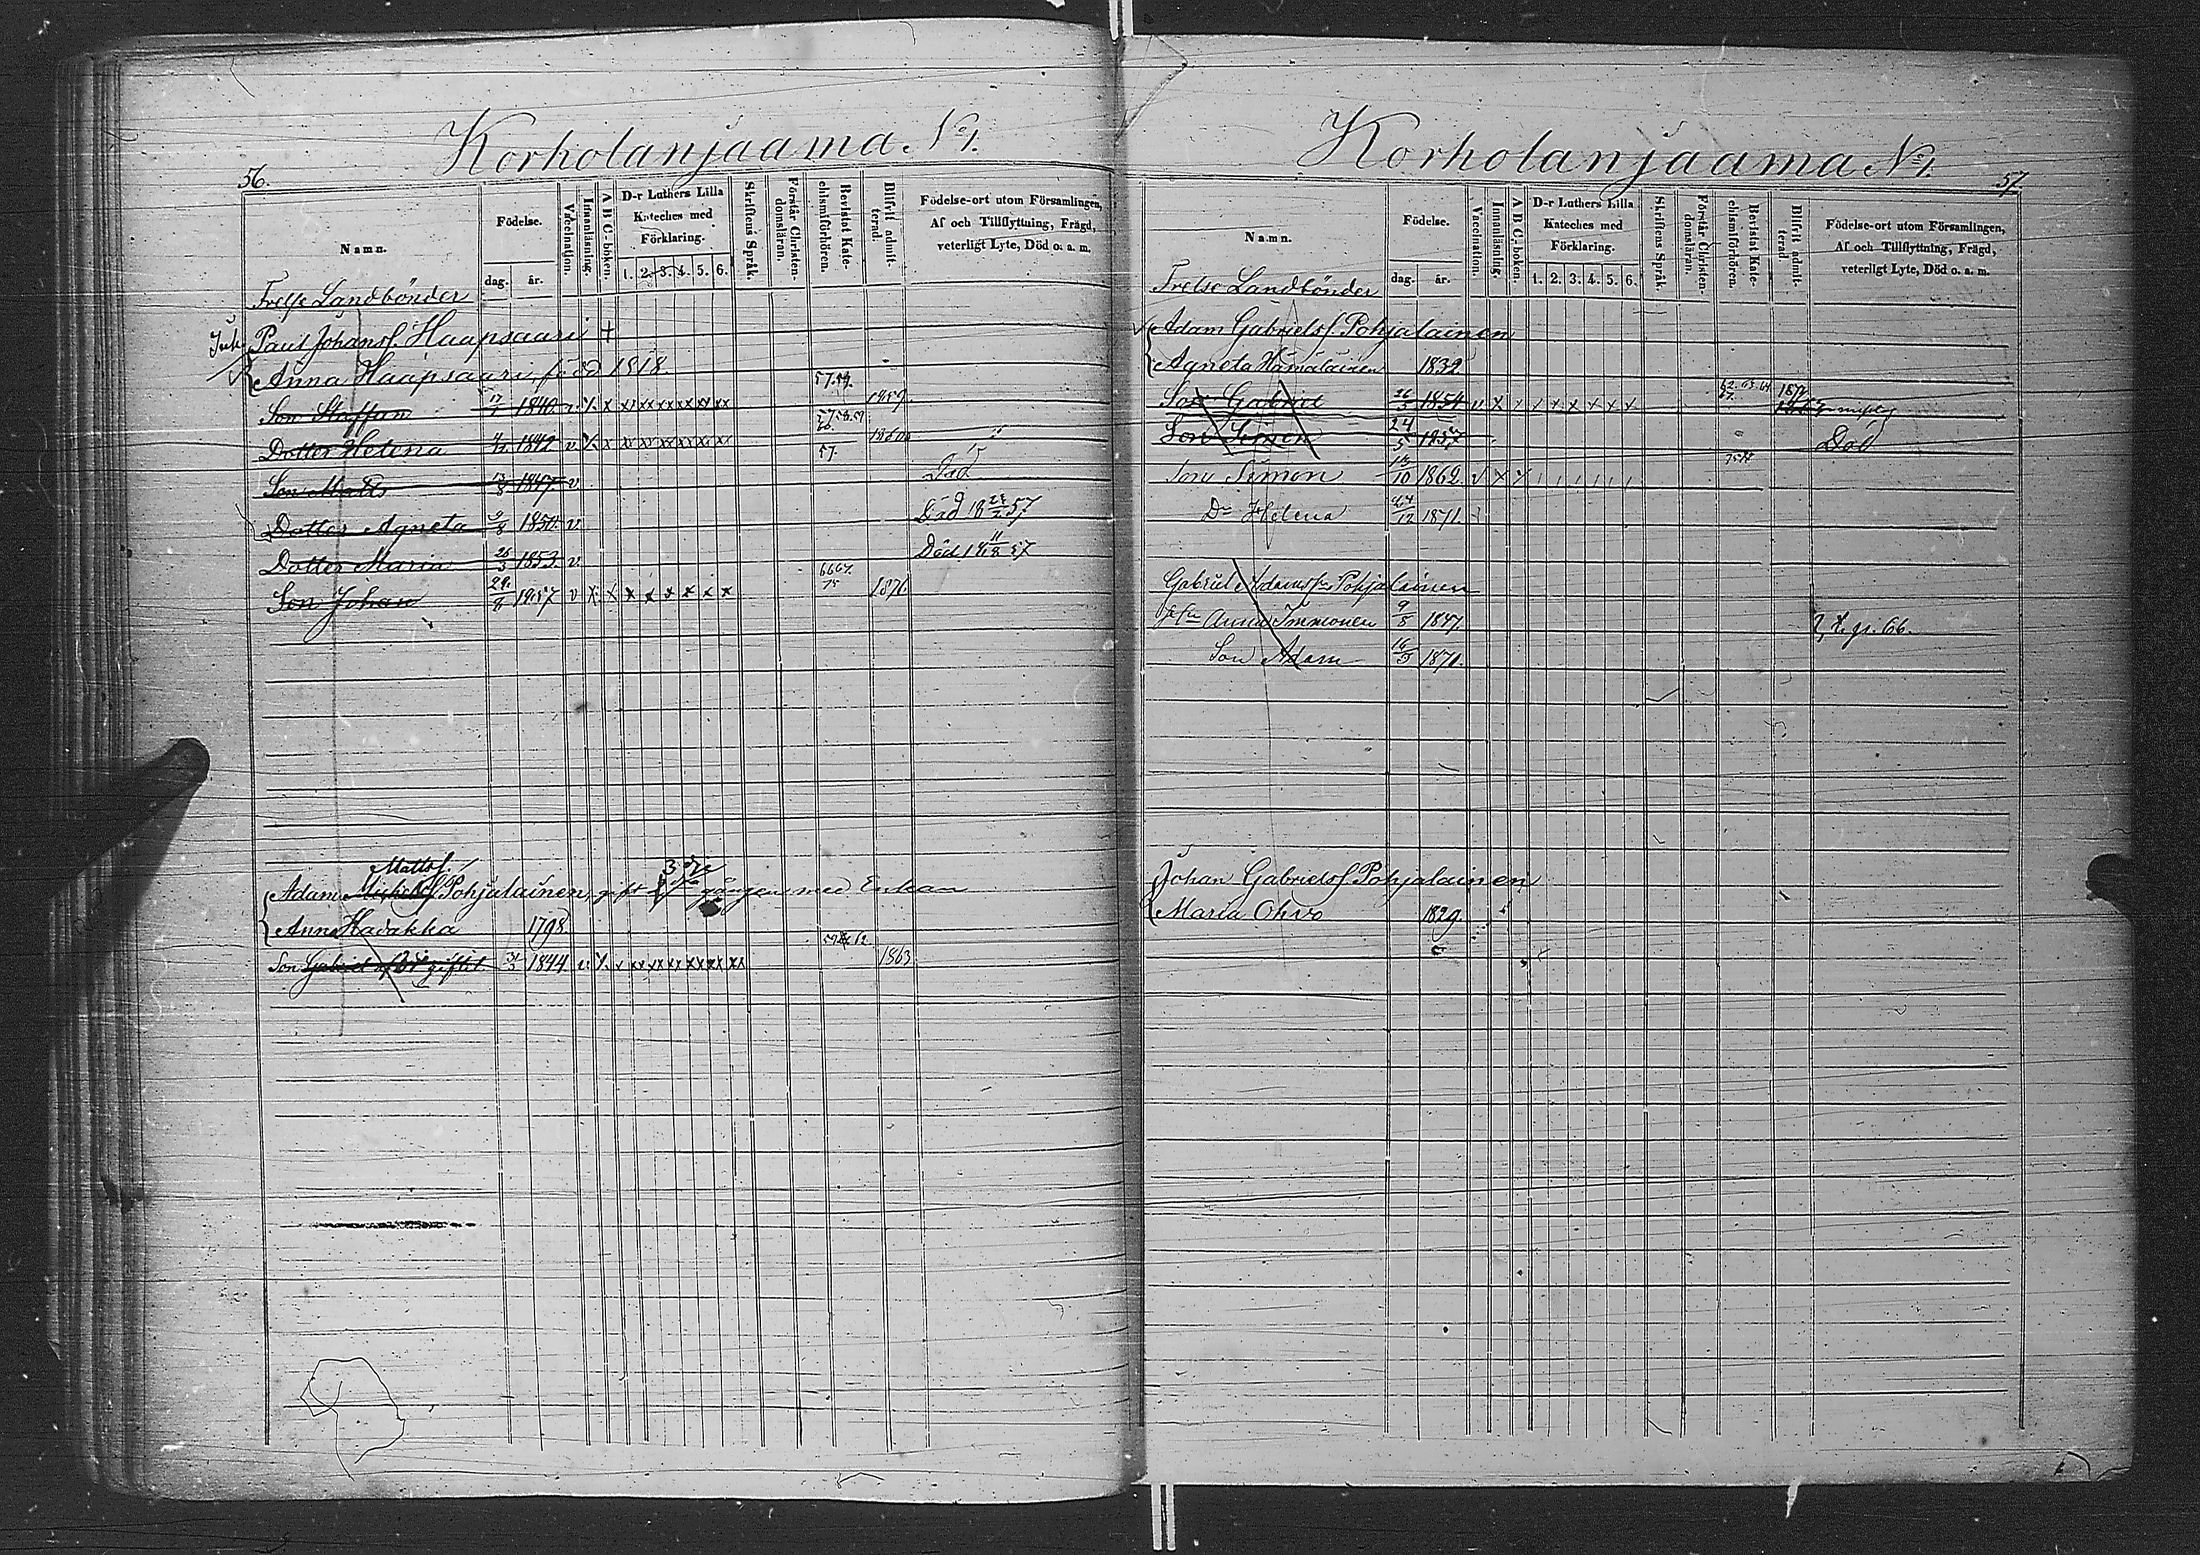 56.
Korholanjaama № 1.
Namn.
Födelse.
dag.
år.
Vaccination.
Innanläsning.
A B C-boken.
D-r Luthers Lilla Kateches med Förklaring.
1. 2. 3. 4. 5. 6.
Skriftens Språk.
Förstår Christendomsläran.
Bevistat Katechismiförhören.
Blifvit admitterad.
Födelse-ort utom Församlingen,
Af och Tillflyttning, Frägd,
veterligt Lyte, Död o. a. m.
Frelse Landbönder
Paul Johansf. Haapsaari †
Anna Haapsaari, född 1818.
Son Staffan 1840. v 1859.
Dotter Helena 1842 v 1860
Son Matts 1847. v Död
Dotter Agneta 9/8 1850. v Död 18 57
Dotter Maria 26/3 1853. v Död 18 11/8 57
Son Johan 29/8 1857 v x x x x x x x x 1876.
Mattsf. 3dje
Adam Michelsf. Pohjalainen, gift gången med Enkan
Anna Hadakka 1798.
Son Gabriel af 2dra giftet 1844. 1863
57.
Korholanjaama № 1.
Namn.
Födelse.
dag.
år.
Vaccination.
Innanläsning.
A B C-boken.
D-r Luthers Lilla Kateches med Förklaring.
1. 2. 3. 4. 5. 6.
Skriftens Språk.
Förstår Christendomsläran.
Bevistat Katechismiförhören.
Blifvit admitterad.
Födelse-ort utom Församlingen,
Af och Tillflyttning, Frägd,
veterligt Lyte, Död o. a. m.
Frelse Landbönder
Adam Gabrielsf. Pohjalainen
Agneta Hämäläinen 1832
Son Gabriel 26/3 1854 v x x x x x x x
Son Simon 24/5 1857 Död
Son Simon 10 1862. v x x
Dr Helena 12 1871.
Gabriel Adamsf. Pohjalainen
Anna Immonen 9/5 1847. gr. 66.
Son Adam 16/5 1871.
Johan Gabrielsf. Pohjalainen
Maria Ohvo 1829.